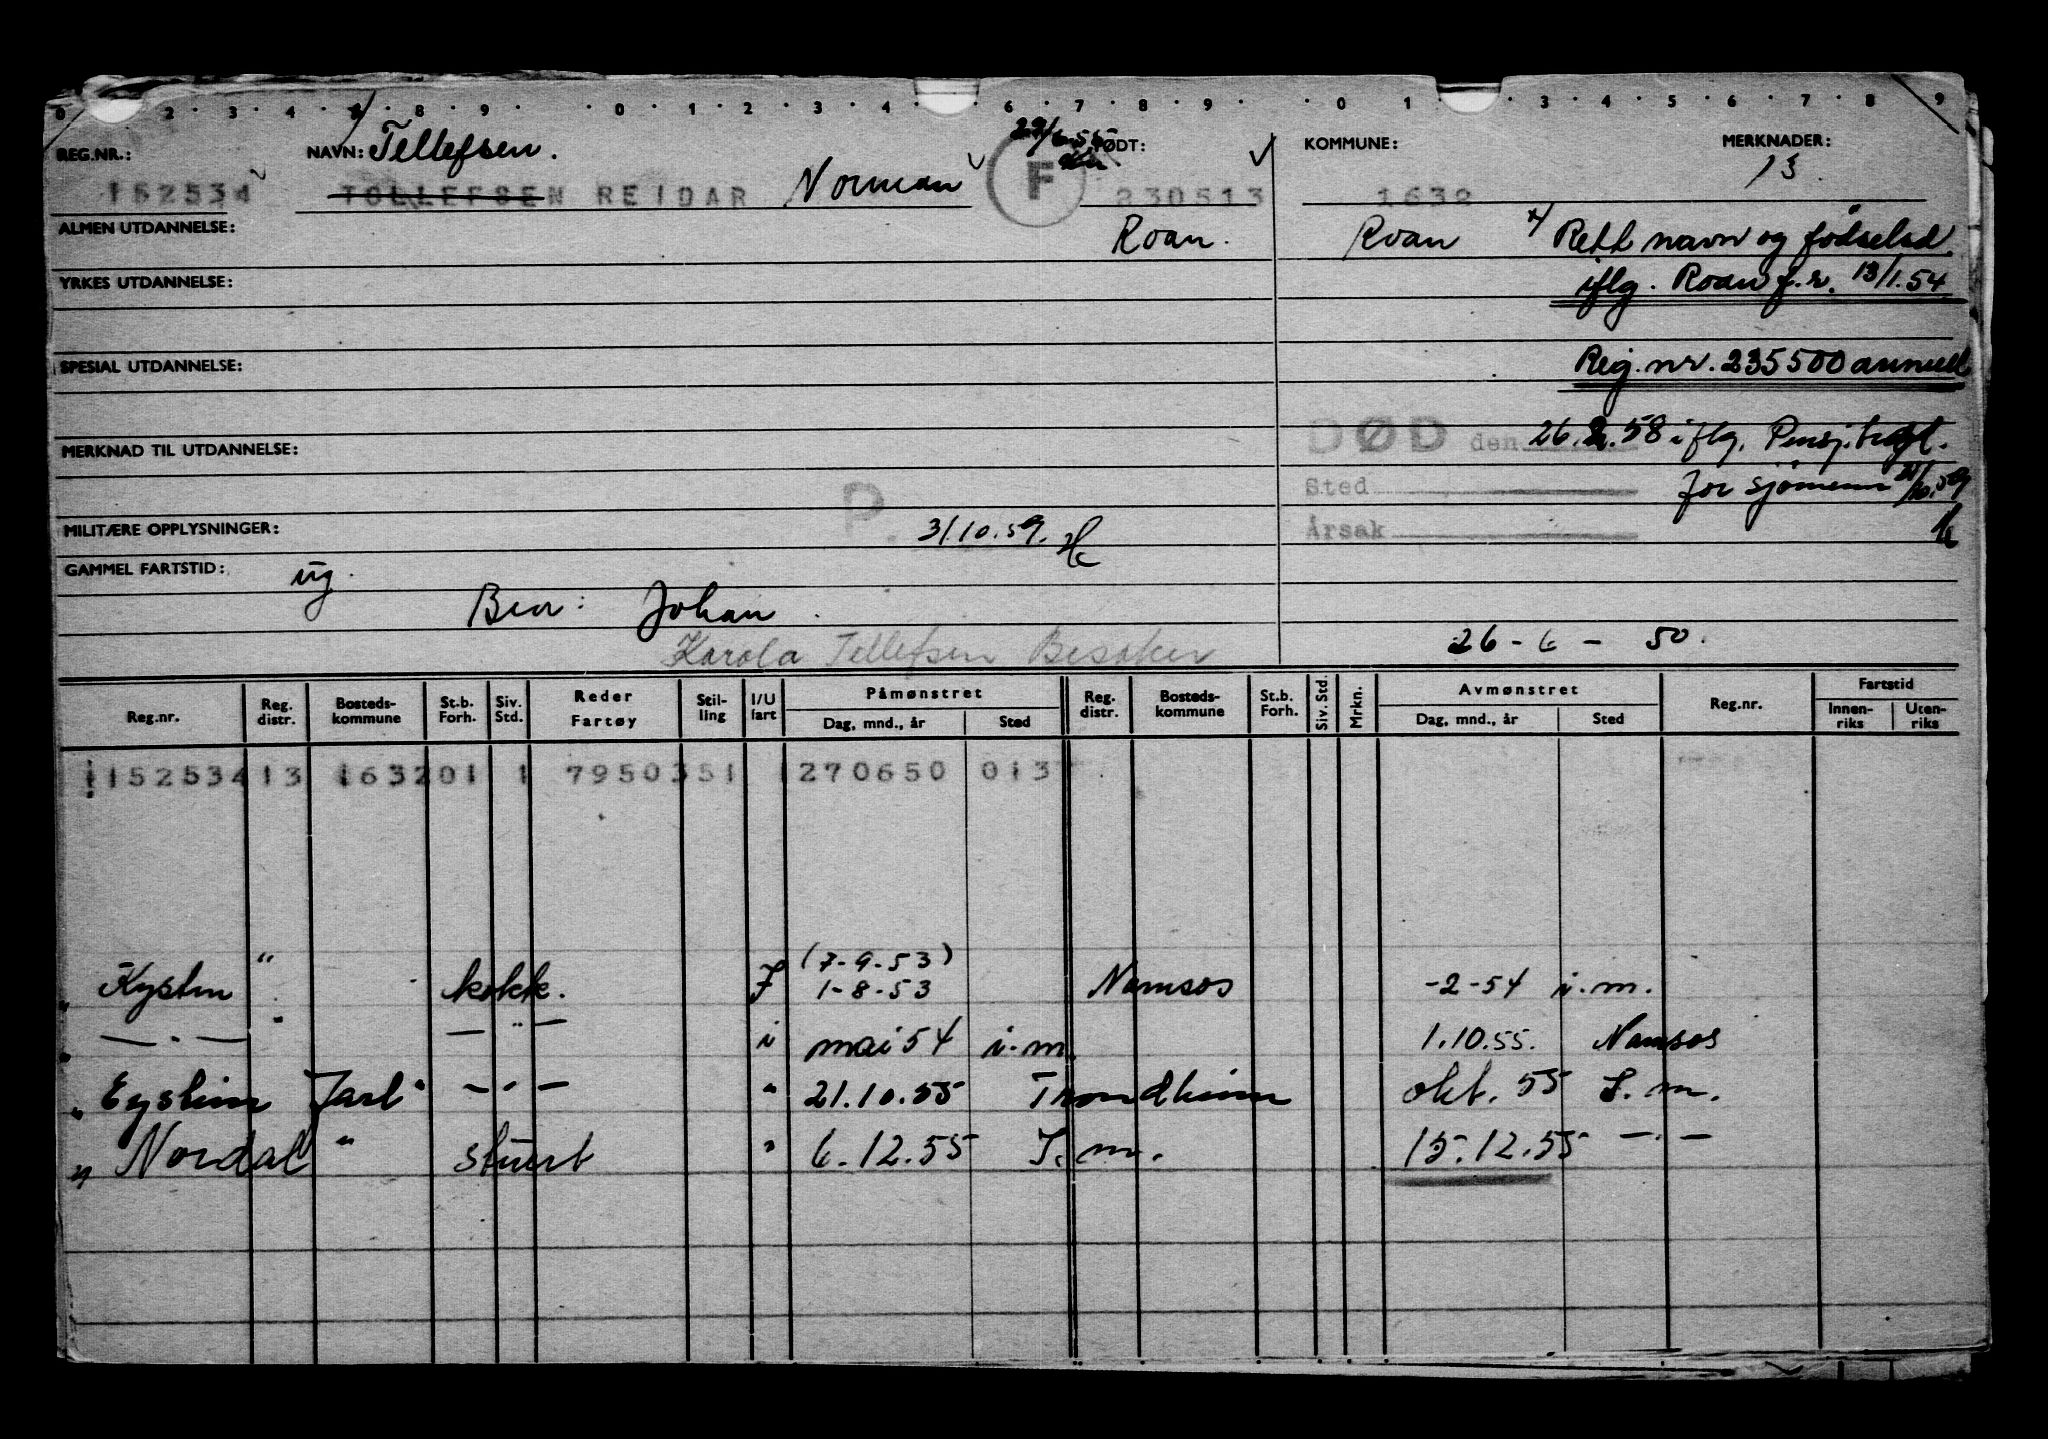 0 2 · 3 · 4 · 6 · 8 · 9 · · 0 · 1 · 2 · 3 · 4 · 6 · 7 · 8 · 9 · · 0 · 1 · 3 · 4 · 5 · 6 · 7 · 8 · 9
REG.NR.: NAVN: Tellefsen. FØDT: KOMMUNE: MERKNADER:
13
152534 TOLLEFSEN REIDAR Norman F 230513 1632
ALMEN UTDANNELSE: Roan. Roan Rett navn og fødselsd
iflg. Roan f.r. 13/1.54
YRKES UTDANNELSE:
SPESIAL UTDANNELSE: Reg. nr. 235500 annull
DØD den 26.2.58 iflg. Pensj.trygd.
MERKNAD TIL UTDANNELSE:
Sted for sjømenn
P. 31/10.59.
MILITÆRE OPPLYSNINGER: Årsak
GAMMEL FARTSTID: ug.
Bror: Johan
Karola Tellefsen Besaker 26 - 6 - 50.
Reg.nr. Reg. distr. Bosteds-kommune St.b. Forh. Siv. Std. Reder Fartøy Stil-ling I/U fart Påmønstret Dag, mnd., år Sted Reg. distr. Bosteds-kommune St.b. Forh. Siv. Std. Mrkn. Avmønstret Dag, mnd., år Sted Reg.nr. Fartstid Innen-riks Uten-riks
115253413 163201 1 7950351 1270650 013
(7-9-53)
" Kysten " kokk. I 1-8-53 Namsos -2-54 i.m.
" — . — " — " — i mai 54 i.m. 1.10.55. Namsos
" Eystein Jarl" — " — " 21.10.55 Trondheim okt. 55 I.m.
" Nordal " stuert " 6.12.55 I.m. 15.12.55 — . —